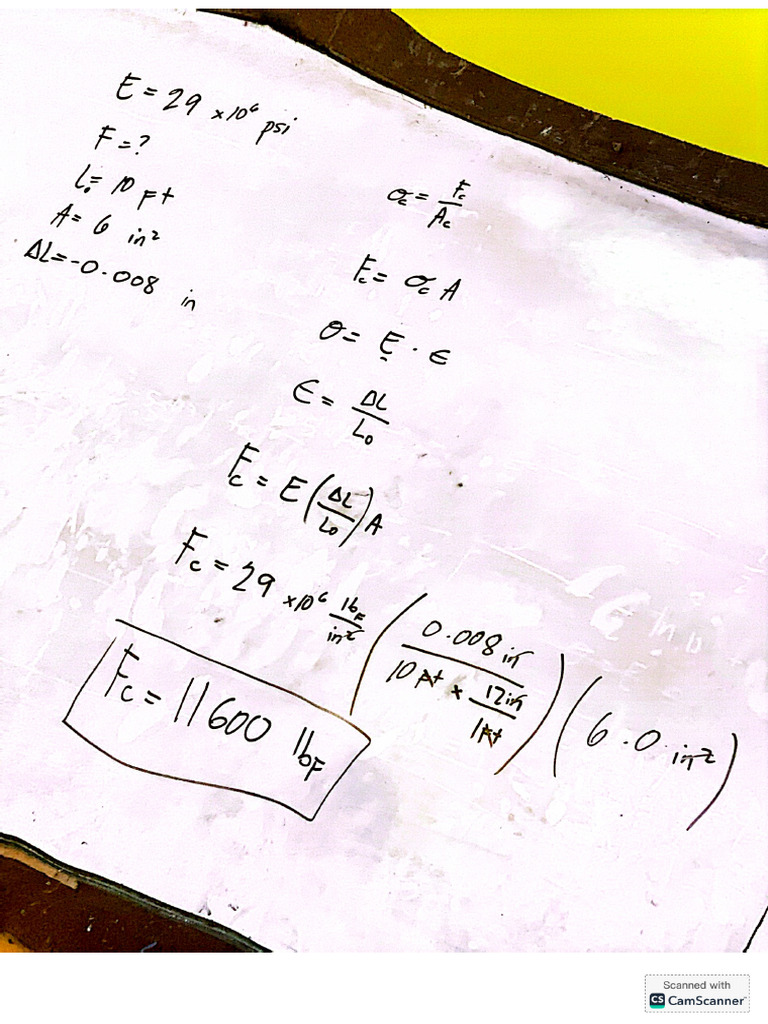 E = 29 ×10⁶ psi
F = ?
L₀ = 10 Ft
A = 6 in²
ΔL = -0.008 in
σc = Fc/Ac
Fc = σc A
σ = E · ϵ
ϵ = ΔL/L₀
Fc = E(ΔL/L₀)A
Fc = 29 ×10⁶ lbF/in² (0.008 in/(10 Ft × 12in/1Ft)) (6.0 in²)
Fc = 11600 lbF
Scanned with
CS CamScanner